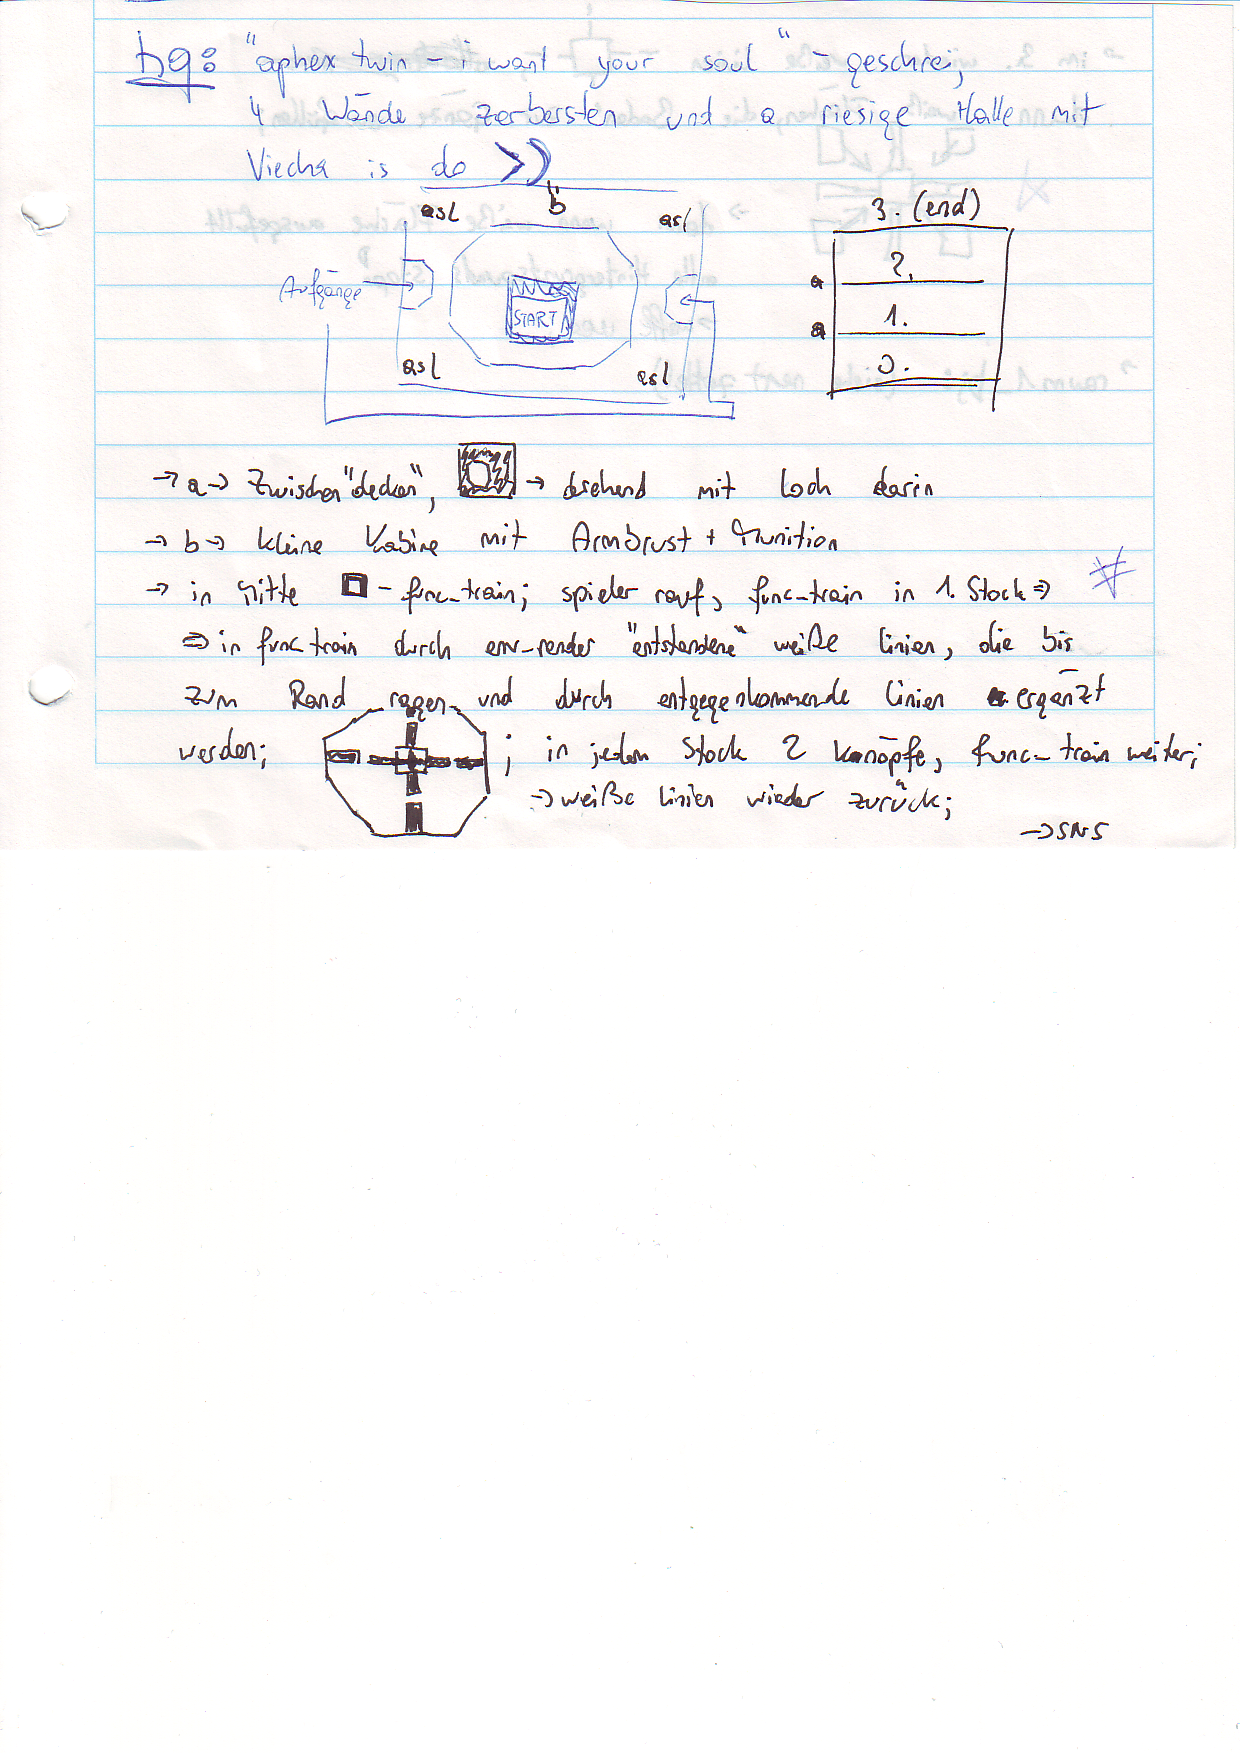 bg: "aphex twin - i want your soul" - geschrei,
4 Wände zerbersten und a riesige Halle mit
Viecha is do
asl b asl
3. (end)
Aufgänge
2.
a
START
1.
a
0.
asl asl
→ a → Zwischen"decken", → drehend mit Loch darin
→ b → kleine Kabine mit Armbrust + Munition
→ in Mitte - func_train; spieler rauf, func-train in 1. Stock ⇒
⇒ in func_train durch env-render "entstandene" weiße linien, die bis
zum Rand ragen und durch entgegenkommende linien ergänzt
werden; ; in jedem Stock 2 Knöpfe, func-train weiter;
→ weiße linien wieder zurück;
→ SNS